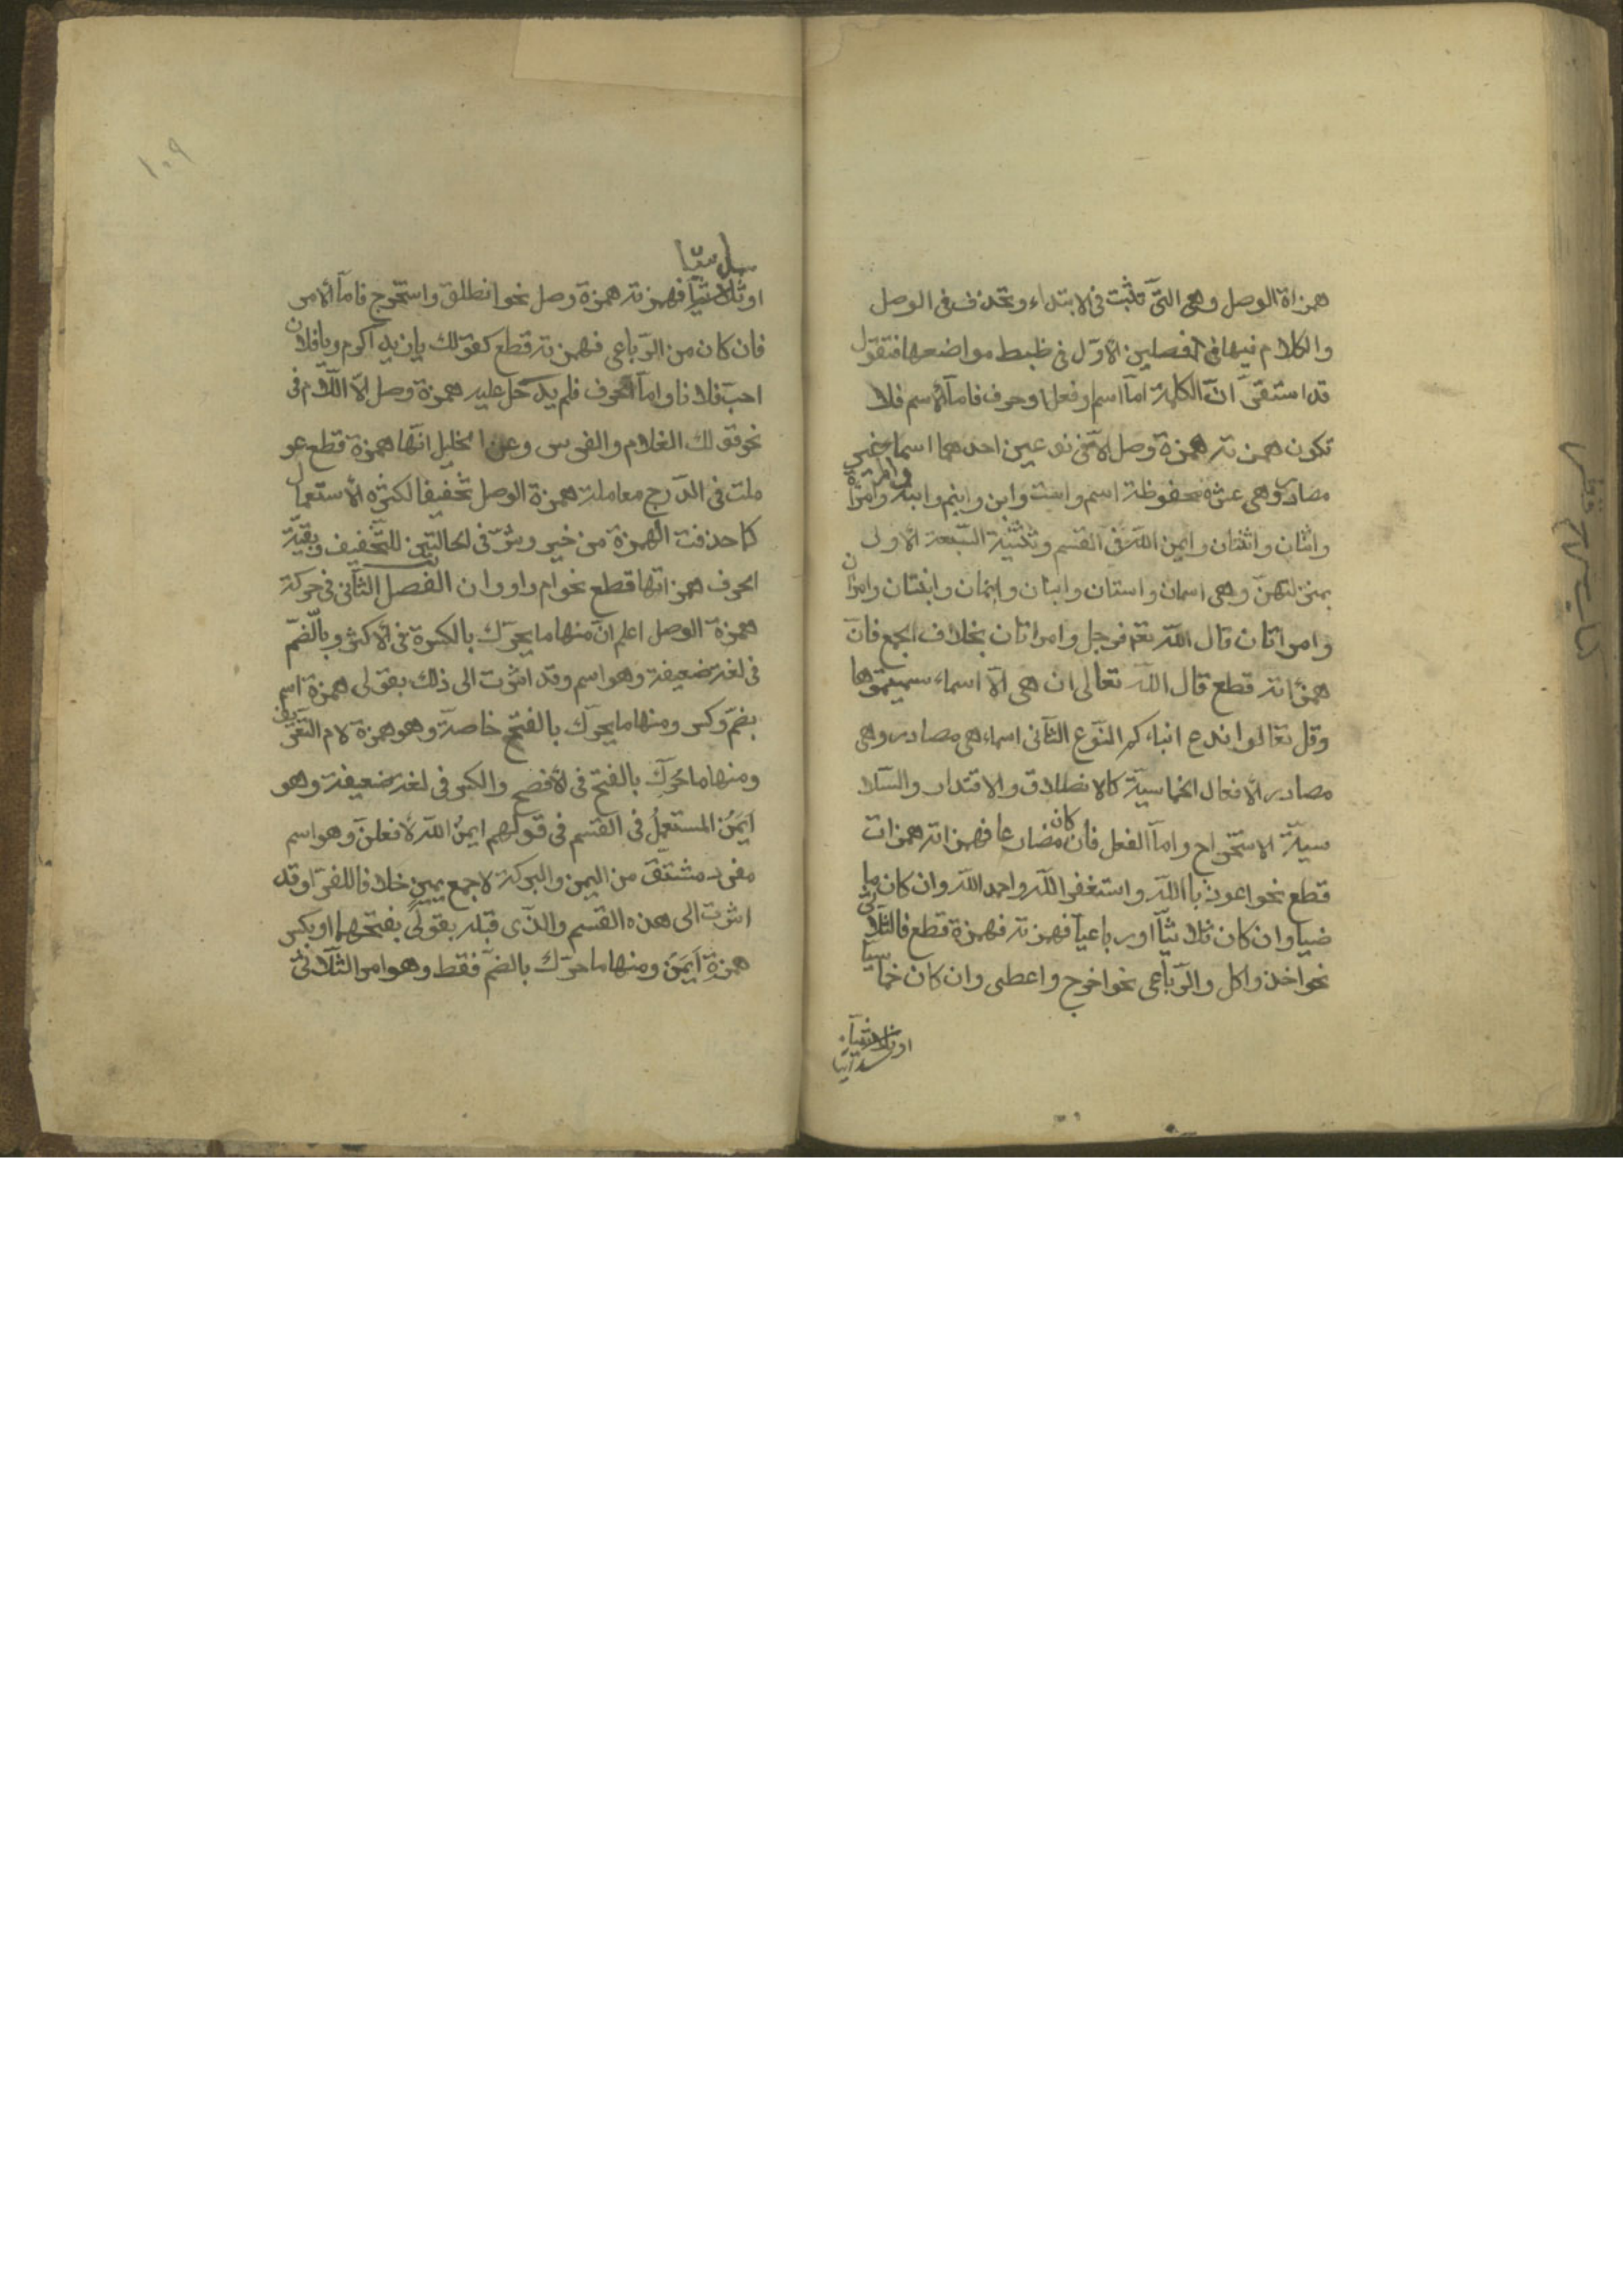 همزاة الوصل وهي التى تثبت فى الابتداء وتحذف فى الوصل
والكلام فيها فى فصلين الاوّل فى ظبط مواضعها فنقول
قد استقى انّ الكلمة امّا اسم او فعل او حرف فامّا الاسم فلا
تكون همزته همزة وصل الا فى نوعين احدهما اسما غير
مصادر وهى عشرة محفوظة اسم واست وابن وابنم وابنة وامرأ وامرأة
واثنان واثنتان وايمن الله فى القسم وتثنية السّبعة الاولى
بمنزلتهنّ وهى اسمان واستان وابنان وابنمان وابنتان وامرأان
وامراتان قال الله تعم فرجل وامراتان بخلاف الجمع فانّ
همزاته قطع قال الله تعالى ان هى الّا اسماء سميتموها
وقل تعالوا ندع ابناءكم النّوع الثّانى اسماء هى مصادر وهى
مصادر الافعال الخماسيّة كالانطلاق والاقتدار والسّدا
سيّة الاستخراج وامّا الفعل فان كان مضارعا فهمزاته همزات
قطع نحو اعوذ باالله واستغفر الله واحمد الله وان كان ما
ضيا وان كان ثلاثيّا او رباعيّا فهمزته فهمزة قطع فالثلاثى
نحو اخذ واكل والرّباعى نحو اخرج واعطى وان كان خماسيّا
او ثلاثيّا
سداسيّا
١٠٩
او ثلاثيّا فهمزته همزة وصل نحو انطلق واستخرج فامّا الامر
فان كان من الرّباعى فهمزته قطع كقولك يازيد اكرم ويافلان
احبّ فلانا وامّا الحرف فلم يدخل عليه همزة وصل الّا اللّام فى
نحو قولك الغلام والفرس وعن الخليل انّها همزة قطع عو
ملت فى الدّرج معاملة همزة الوصل تخفيفا لكثرة الاستعمال
كما حذفت الهمزة من خير وشرّ فى الحالتين للتّخفيف وبقيّة
الحرف همزاتها قطع نحو ام واو وان الفصل الثّانى فى حركة
همزة الوصل اعلم انّ منها ما يحرّك بالكسرة فى الاكثر وبالضّمّ
فى لغة ضعيفة وهو اسم وقد اشرت الى ذلك بقولى همزة اسم
بضمّ وكسر ومنها ما يحرّك بالفتح خاصّة وهو همزة لام التّعريف
ومنها ما يحرّك بالفتح فى الافصح والكسر فى لغة ضعيفة وهو
ايمن المستعمل فى القسم فى قولهم ايمن الله لافعلنّ وهو اسم
مفرد مشتقّ من اليمن والبركة لا جمع يمين خلافا للفرّا وقد
اشرت الى هذه القسم والذّى قبله بقولى بفتحهما او بكسر
همزة ايمن ومنها ما حرّك بالضمّ فقط وهو امر الثّلاثى